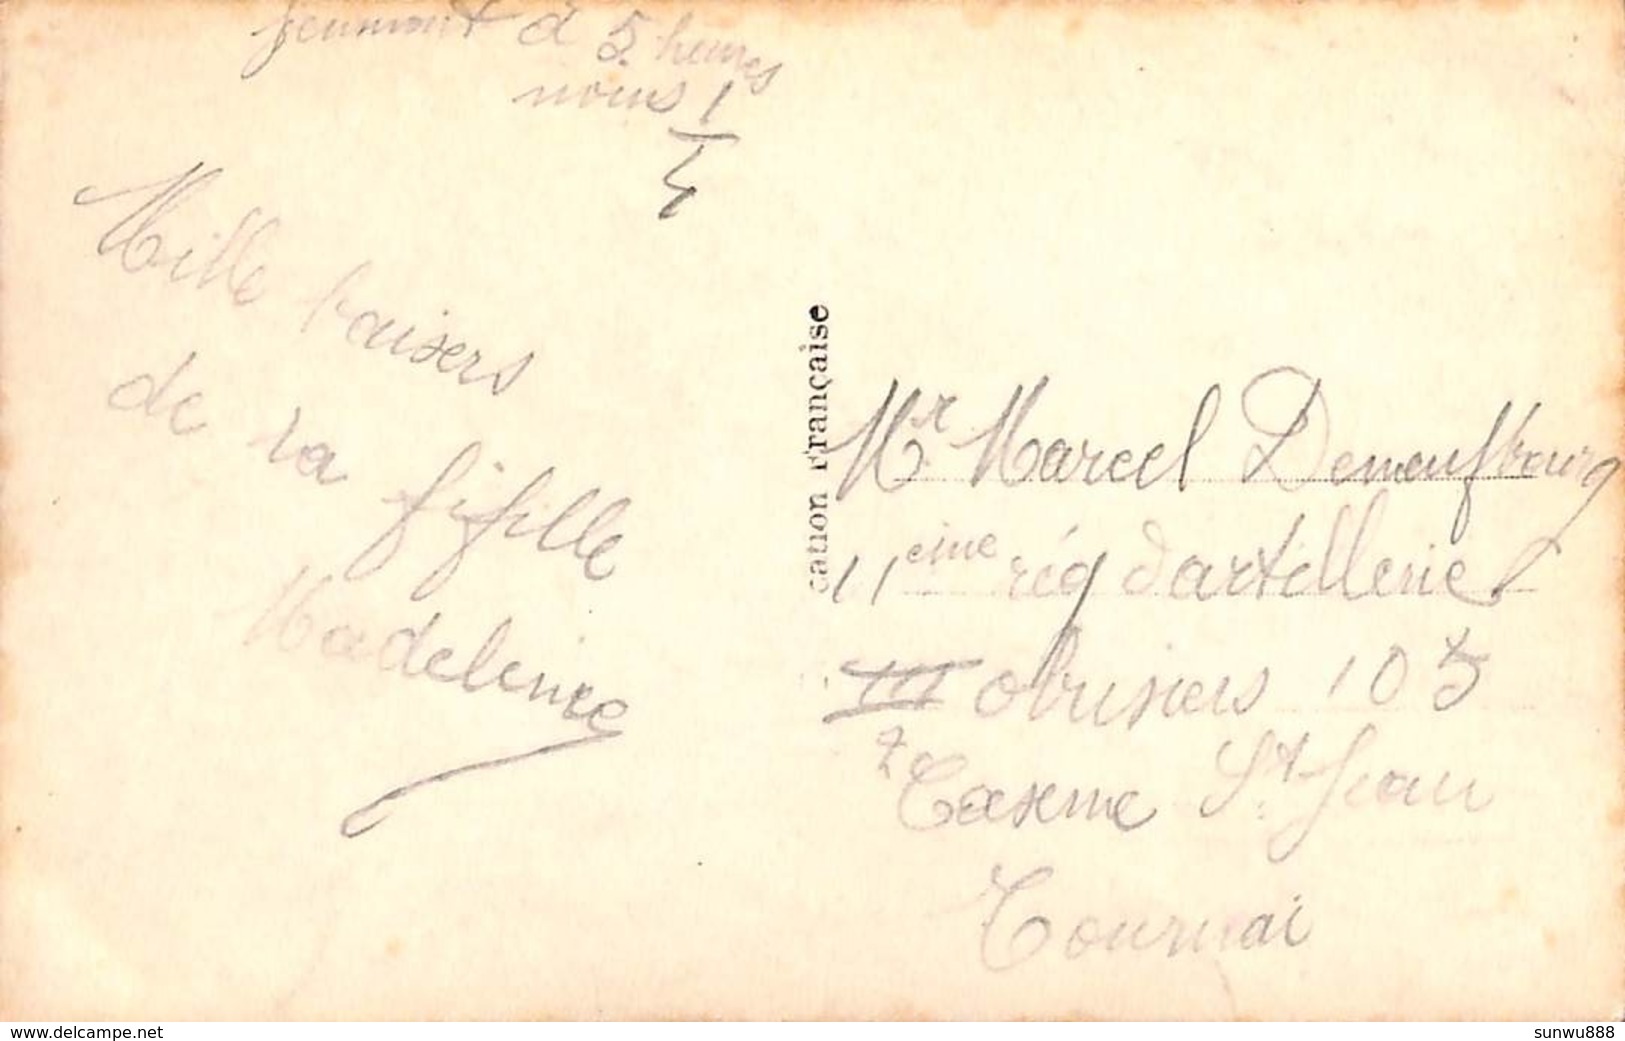 Jeumont à 5 heures
moins 1/4
Mille baisers
de ta fifille
Madeleine
cation Française
Mr Marcel Deneufbourg
11eme rég d'artillerie
III obusiers 105
Caserne St Jean
Tournai
www.delcampe.net
sunwu888